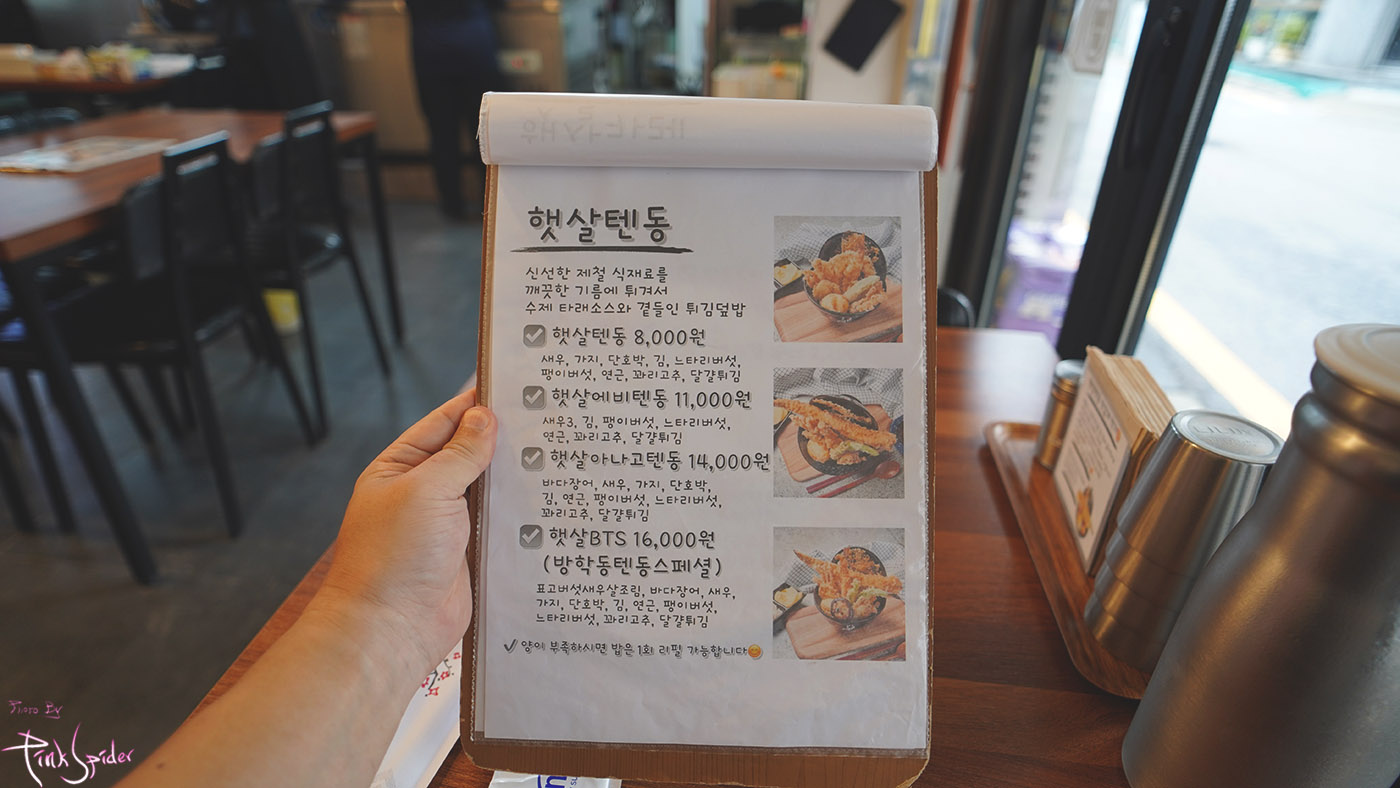 햇살텐동
신선한 제철 식재료를
깨끗한 기름에 튀겨서
수제 타래소스와 곁들인 튀김덮밥
햇살텐동 8,000원
새우, 가지, 단호박, 김, 느타리버섯,
팽이버섯, 연근, 꽈리고추, 달걀튀김
햇살에비텐동 11,000원
새우3, 김, 팽이버섯, 느타리버섯,
연근, 꽈리고추, 달걀튀김
햇살아나고텐동 14,000원
바다장어, 새우, 가지, 단호박,
김, 연근, 팽이버섯, 느타리버섯,
꽈리고추, 달걀튀김
햇살BTS 16,000원
(방학동텐동스페셜)
표고버섯새우살조림, 바다장어, 새우,
가지, 단호박, 김, 연근, 팽이버섯,
느타리버섯, 꽈리고추, 달걀튀김
✓양이 부족하시면 밥은 1회 리필 가능합니다😊
Photo By
Pink Spider